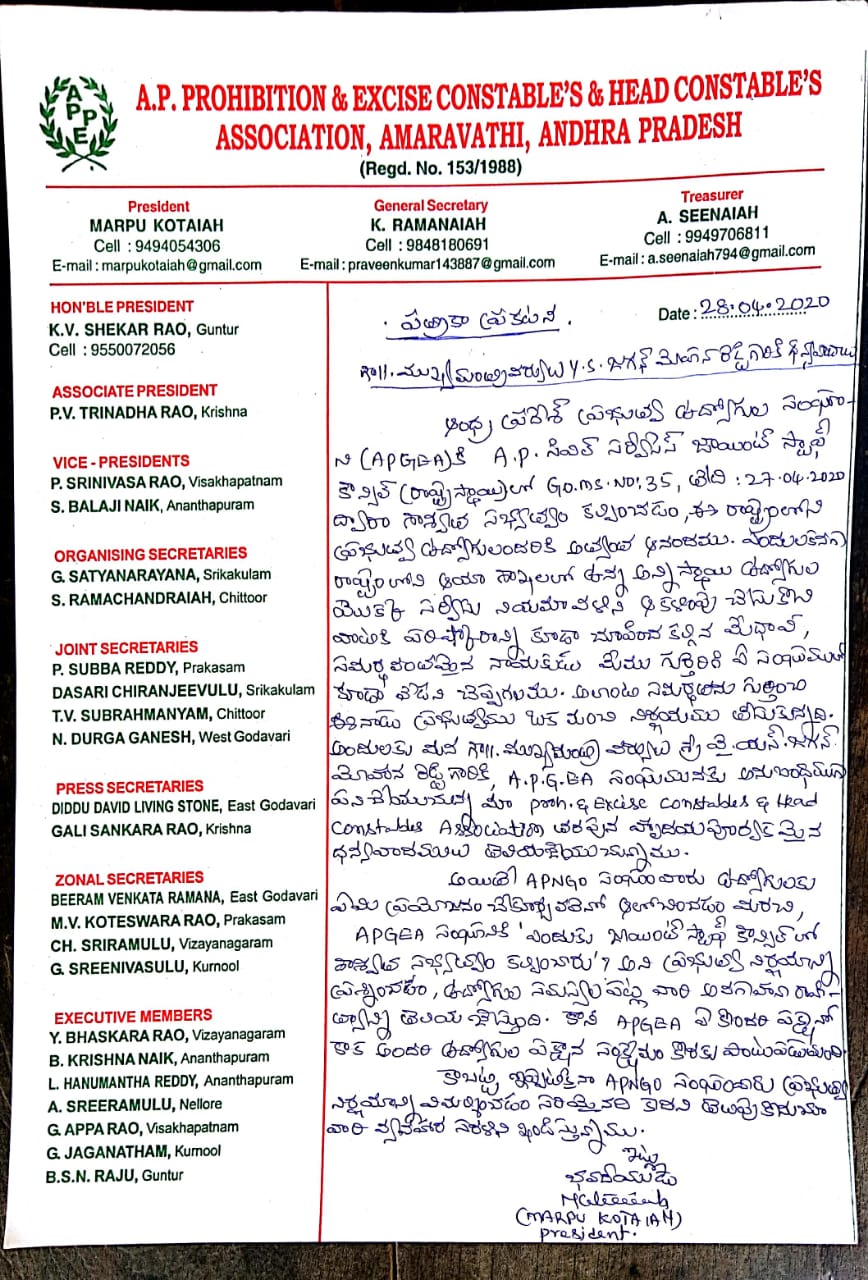 APPE
A.P. PROHIBITION & EXCISE CONSTABLE'S & HEAD CONSTABLE'S
ASSOCIATION, AMARAVATHI, ANDHRA PRADESH
(Regd. No. 153/1988)
President
MARPU KOTAIAH
Cell : 9494054306
E-mail : marpukotaiah@gmail.com
General Secretary
K. RAMANAIAH
Cell : 9848180691
E-mail : praveenkumar143887@gmail.com
Treasurer
A. SEENAIAH
Cell : 9949706811
E-mail : a.seenaiah794@gmail.com
HON'BLE PRESIDENT
K.V. SHEKAR RAO, Guntur
Cell : 9550072056
ASSOCIATE PRESIDENT
P.V. TRINADHA RAO, Krishna
VICE - PRESIDENTS
P. SRINIVASA RAO, Visakhapatnam
S. BALAJI NAIK, Ananthapuram
ORGANISING SECRETARIES
G. SATYANARAYANA, Srikakulam
S. RAMACHANDRAIAH, Chittoor
JOINT SECRETARIES
P. SUBBA REDDY, Prakasam
DASARI CHIRANJEEVULU, Srikakulam
T.V. SUBRAHMANYAM, Chittoor
N. DURGA GANESH, West Godavari
PRESS SECRETARIES
DIDDU DAVID LIVING STONE, East Godavari
GALI SANKARA RAO, Krishna
ZONAL SECRETARIES
BEERAM VENKATA RAMANA, East Godavari
M.V. KOTESWARA RAO, Prakasam
CH. SRIRAMULU, Vizayanagaram
G. SREENIVASULU, Kurnool
EXECUTIVE MEMBERS
Y. BHASKARA RAO, Vizayanagaram
B. KRISHNA NAIK, Ananthapuram
L. HANUMANTHA REDDY, Ananthapuram
A. SREERAMULU, Nellore
G. APPA RAO, Visakhapatnam
G. JAGANATHAM, Kurnool
B.S.N. RAJU, Guntur
Date : 28.04.2020
. పత్రికా ప్రకటన .
గౌ||. ముఖ్యమంత్రివర్యులు Y.S. జగన్ మోహన రెడ్డి గారికి ధన్యవాదాలు
ఆంధ్ర ప్రదేశ్ ప్రభుత్వ ఉద్యోగుల సంఘా-
ని (APGEA)కి A.P. సివిల్ సర్వీసెస్ జాయింట్ స్టాఫ్
కౌన్సిల్ (రాష్ట్రస్థాయి)లో G.O.MS.NO:35, తేది : 27.04.2020
ద్వారా శాశ్వత సభ్యత్వం కల్పించడం, ఈ రాష్ట్రంలోని
ప్రభుత్వ ఉద్యోగులందరికి అత్యంత ఆనందము. ఎందులకనగా
రాష్ట్రంలోని ఆయా శాఖలలో ఉన్న అన్ని స్థాయి ఉద్యోగుల
యొక్క సర్వీసు నియమావళిని ఆకళింపు చేసుకొని
వాటికి పరిష్కారాన్ని కూడా చూపించ కల్గిన మేధావి,
సమర్థవంతమైన నాయకుడు మేము గుర్తెరిగి ఏ సంఘములో
కూడా లేడని చెప్పగలము. అలాంటి సమర్థతను గుర్తించి
ఈనాడు ప్రభుత్వము ఒక మంచి నిర్ణయము తీసుకున్నది.
అందులకు మన గౌ||. ముఖ్యమంత్రి వర్యులు శ్రీ వై.యస్. జగన్
మోహన రెడ్డి గారికి, A.P.G.EA సంఘమునకు అనుబంధముగ
పనిచేయుచున్న మా proh. & Excise Constables & Head
Constables అసోసియేషన్ తరపున హృదయపూర్వకమైన
ధన్యవాదములు తెలియజేయుచున్నాము.
అయితే APNGO సంఘంవారు ఉద్యోగులకు
ఏమి ప్రయోజనం చేకూర్చవలెనో ఆలోచించడం మరచి,
APGEA సంఘానికి 'ఎందుకు జాయింట్ స్టాఫ్ కౌన్సిల్ లో
శాశ్వత సభ్యత్వం కల్పించారు'? అని ప్రభుత్వ నిర్ణయాన్ని
ప్రశ్నించడం, ఉద్యోగుల సమస్యల పట్ల వారి అవగాహనా రాహి-
త్యాన్ని తెలియజేస్తుంది. కాని APGEA ఏ కొందరి పక్షానో
కాక అందరి ఉద్యోగుల పక్షాన సంక్షేమం కొరకు పాటుపడుతుంది.
కాబట్టి ఇప్పటికైనా APNGO సంఘంవారు ప్రభుత్వ
నిర్ణయాన్ని విమర్శించడం సరియైనది కాదని తెలుపుకొనుచూ
వారి వ్యవహార సరళిని ఖండిస్తున్నాము.
ఇట్లు
భవదీయుడు
(MARPU KOTAIAH)
president.